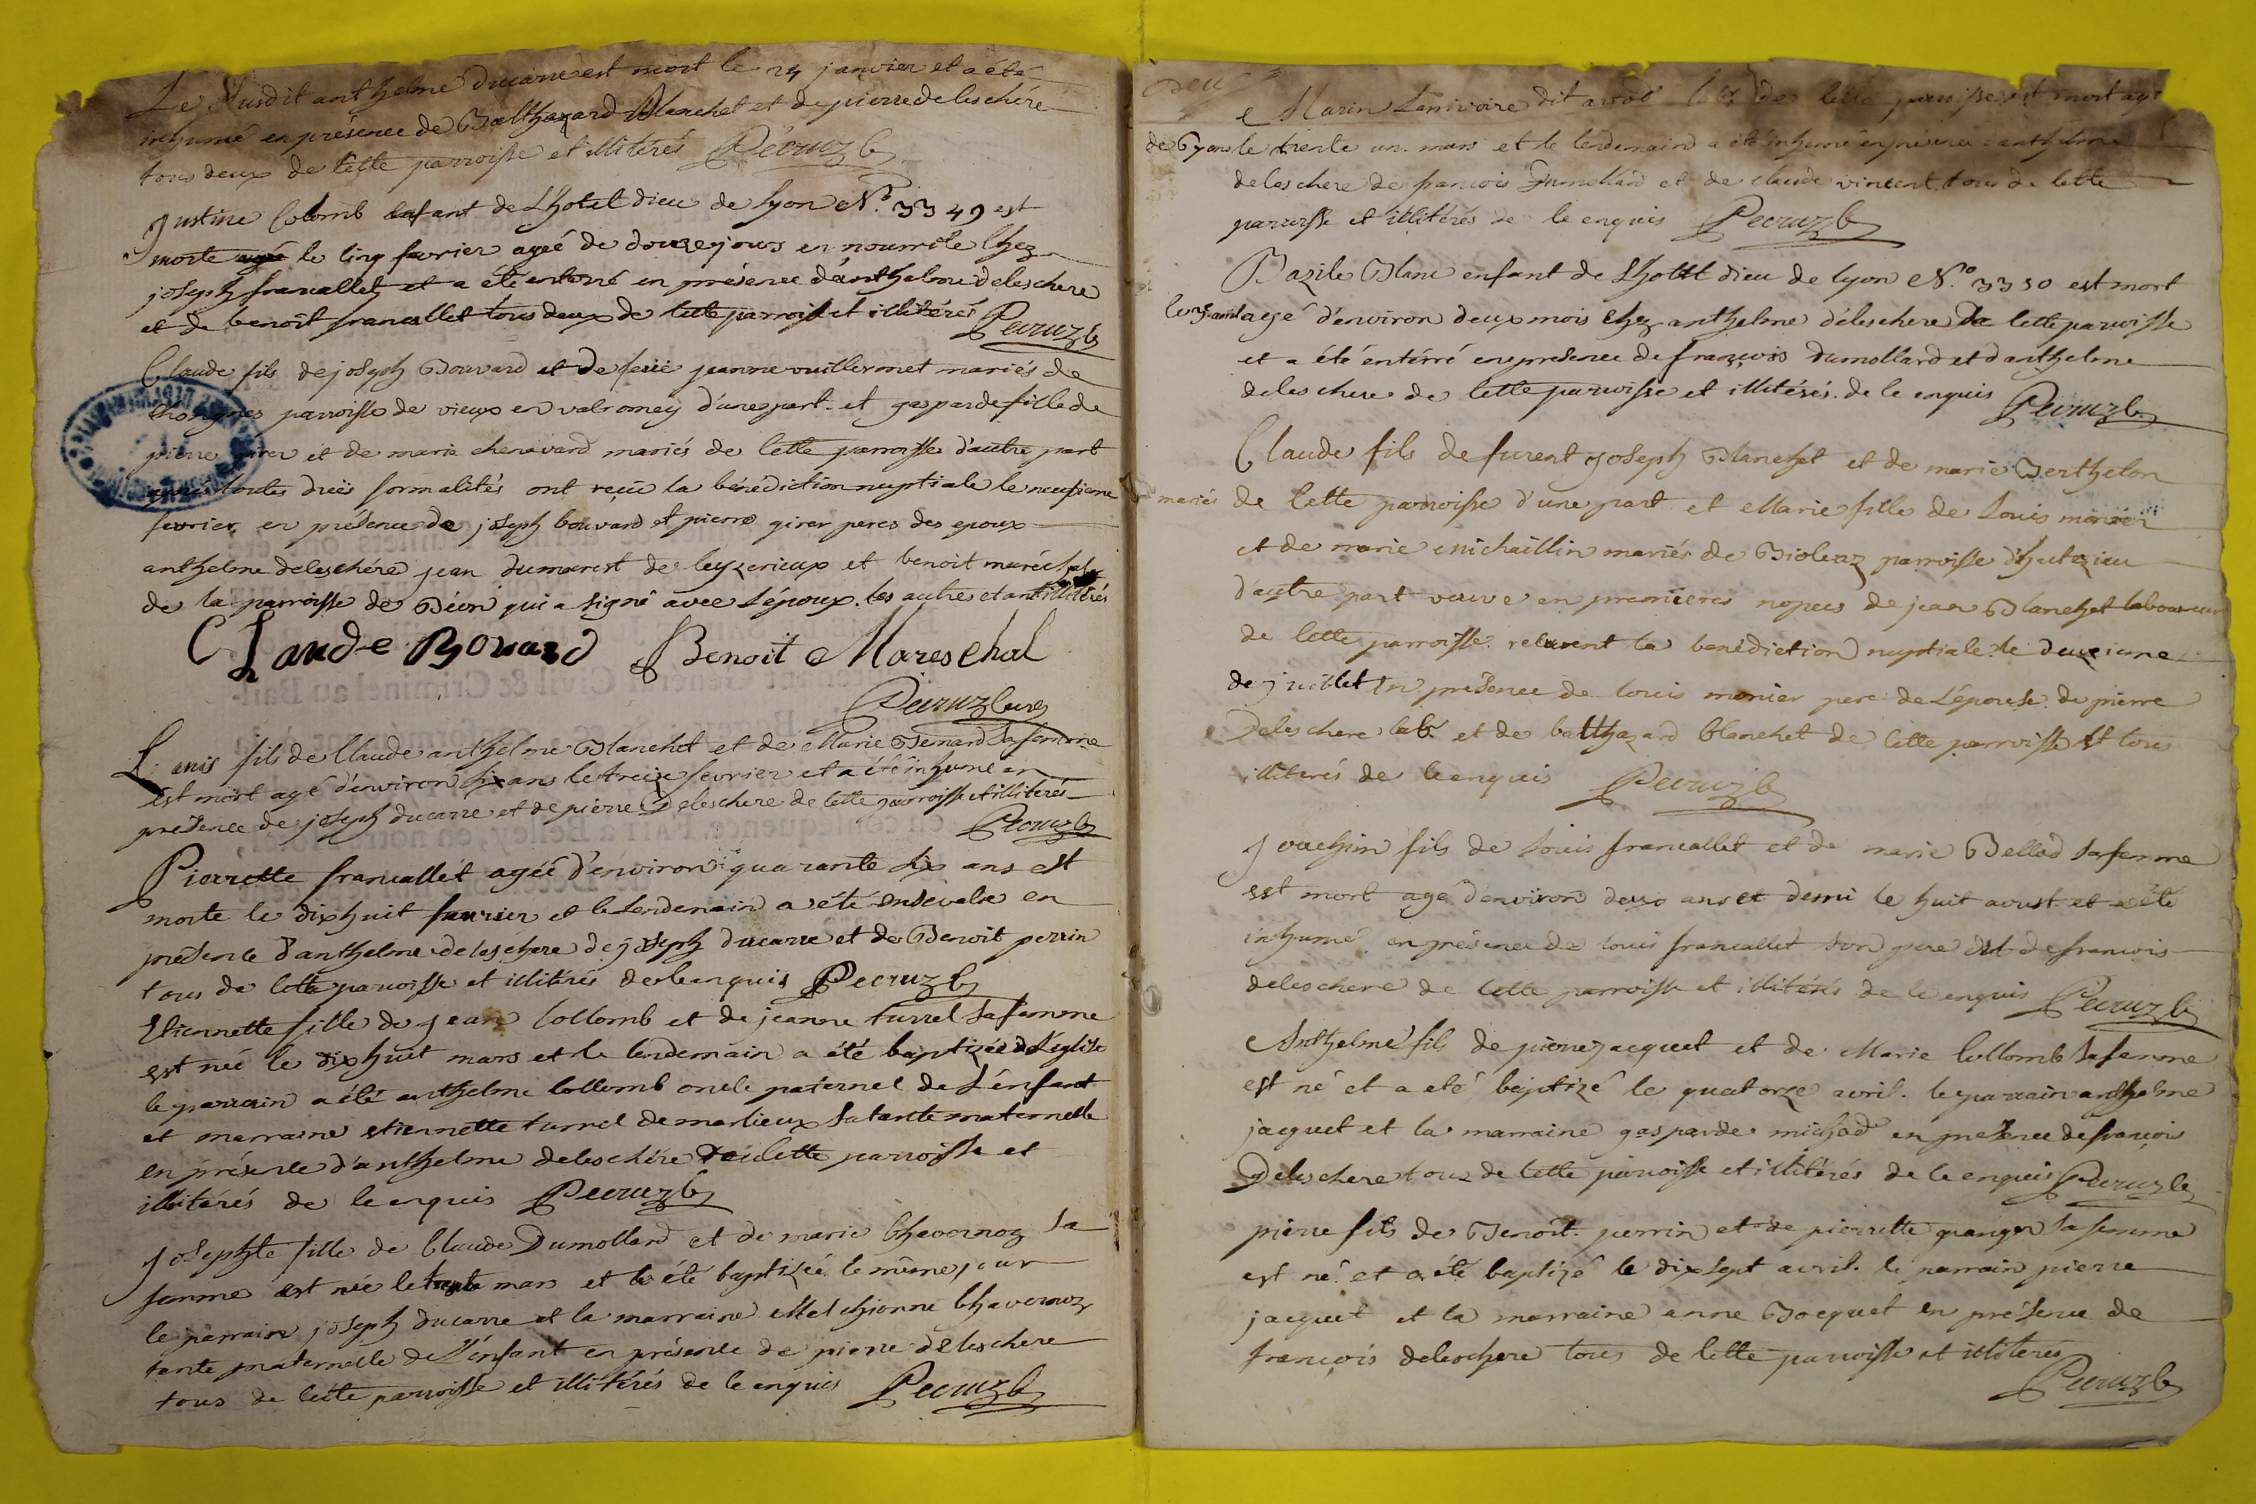 Le susdit anthelme Ducarre est mort le 24 janvier et a été
inhumé en présence de Balthazard Blanchet et de pierre deleschere
tous deux de cette parroisse et illitérés Pecruz c
justine Colomb enfant de L'hotel dieu de lyon N.o 3349 est
morte le cinq fevrier agéé de douze jours en nourrice chez
joseph francallet et a été enterré en présence d'anthelme deleschere
et de benoît francallet tous deux de cette parroisse et illitérés Pecruz c
Claude fils de joseph Bouvard et de feüe jeanne vuillermet mariés de
parroisse de vieux en valromey d'une part et gasparde fille de
pierre girer et de marie chenavard mariés de cette parroisse d'autre part
après toutes düës formalités ont reçu la bénédiction nuptiale le neufieme
fevrier en présence de joseph bouvard et pierre girer peres des epoux
anthelme deleschere jean dumarest de leyzerieux et benoit maréchal
de la parroisse de Béon qui a signé avec L'époux. les autres etant illitérés
Claude Bovard Benoit Mareschal
Pecruz curé
Louis fils de Claude anthelme Blanchet et de Marie Bernard sa femme
est mort agé d'environ six ans le treize fevrier et a été inhumé en
présence de joseph ducarre et de pierre Deleschere de cette parroisse et illitérés
Pecruz c
Pierrette francallet agéé d'environ quarante six ans est
morte le dix huit fevrier et le Lendemain a été ensevelie en
présence d'anthelme deleschere de joseph ducarre et de Benoit perrin
tous de cette parroisse et illitérés de ce enquis Pecruz c
Etiennette fille de jean Collomb et de jeanne turrel sa femme
est née le dix huit mars et le lendemain a été baptizée à L'église
le parrain a été anthelme Collomb oncle paternel de L'enfant
et marraine etiennette turrel de marlieux sa tante maternelle
en présence d'anthelme deleschere de cette parroisse et
illitérés de ce enquis Pecruz c
josephte fille de Claude Dumollard et de marie Chavornoz sa
femme est née le trente mars et a été baptizée le même jour
le parrain joseph ducarre et la marraine Melchionne Chavornoz
tante maternelle de L'enfant en présence de pierre deleschere
tous de cette parroisse et illitérés de ce enquis Pecruz c
Marin dit de cette parroisse est mort agé
de 6 le trente un mars et le lendemain a été inhumé en présence d'anthelme
deleschere de francois Dumollard et de claude vincent tous de cette
parroisse et illitérés de ce enquis Pecruz c
Bazile Blanc enfant de L'hotel dieu de lyon N.o 3350 est mort
agé d'environ deux mois chez anthelme deleschere de cette parroisse
et a été entérré en présence de françois dumollard et d'anthelme
deleschere de cette parroisse et illitérés. de ce enquis Pecruz c
Claude fils de furent joseph Blanchet et de marie Berthelon
mariés de cette parroisse d'une part et Marie fille de Louis monier
et de marie michaillin mariés de Biolenz parroisse
d'autre part veuve en premieres nopces de jean Blanchet laboureur
de cette parroisse recurent la bénédiction nuptiale le deuxieme
de juillet en présence de louis monier pere de L'épouse de pierre
Deleschere lab.r et de balthazard blanchet de cette parroisse et tous
illiterés de ce enquis Pecruz c
joachim fils de Louis francallet et de marie Bellod sa femme
est mort agé d'environ deux ans et demi le huit avril et a été
inhumé en présence de louis francallet son pere et de francois
deleschere de cette parroisse et illitérés de ce enquis Pecruz c
Anthelme fils de pierre jacquet et de Marie Collomb sa femme
est né et a été baptizé le quatorze avril. le parrain anthelme
jacquet et la marraine gasparde michod en présence de françois
Deleschere tous de cette parroisse et illitérés de ce enquis Pecruz c
pierre fils de Benoît perrin et de pierrette granger sa femme
est né et a été baptizé le dix sept avril. le parrain pierre
jacquet et la marraine anne Bocquet en présence de
françois deleschere tous de cette parroisse et illiterés
Pecruz c